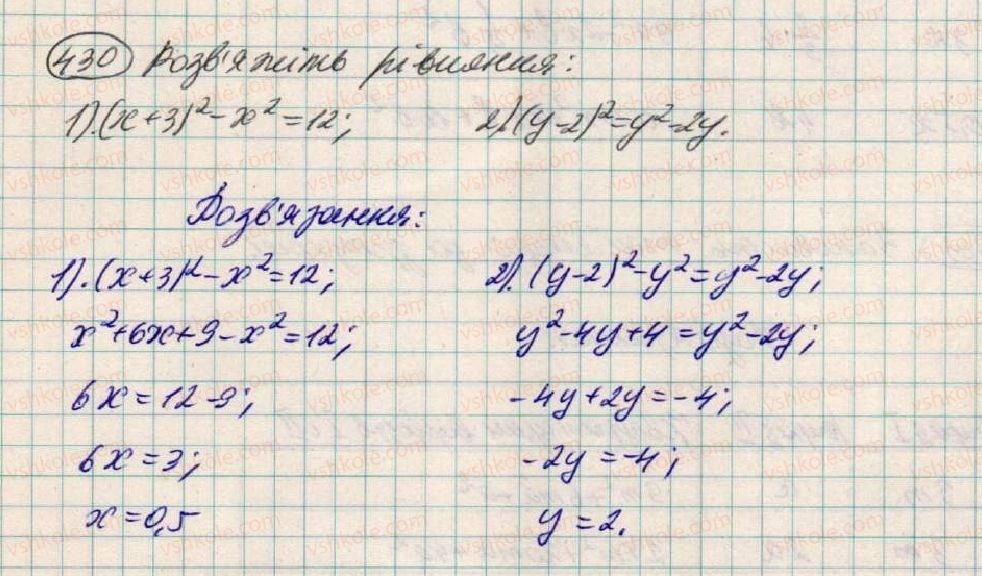 430 Розв'яжіть рівняння:
1).(x+3)²-x²=12; 2).(y-2)²=y²-2y.
Розв'язання:
1).(x+3)²-x²=12; 2).(y-2)²-y²=y²-2y;
x²+6x+9-x²=12; y²-4y+4=y²-2y;
6x=12-9; -4y+2y=-4;
6x=3; -2y=-4;
x=0,5 y=2.
vshkole.com